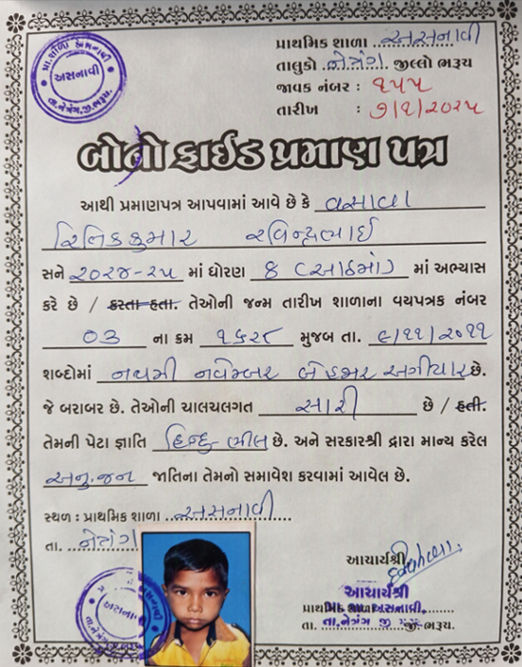 પ્રા.શાળા અસનાવી
અસનાવી
તા.નેત્રંગ.જી.ભરૂચ.
પ્રાથમિક શાળા અસનાવી
તાલુકો નેત્રંગ જીલ્લો ભરૂચ
જાવક નંબર : ૧૫૫
તારીખ : ૭/૧/૨૦૨૫
બોનોફાઈડ પ્રમાણ પત્ર
આથી પ્રમાણપત્ર આપવામાં આવે છે કે વસાવા
રિતિકકુમાર રવિન્દ્રભાઈ
સને ૨૦૨૪-૨૫ માં ધોરણ ૮ (આઠમાં) માં અભ્યાસ
કરે છે / કરતા હતા. તેઓની જન્મ તારીખ શાળાના વયપત્રક નંબર
૦૩ ના ક્રમ ૧૬૨૮ મુજબ તા. ૯/૧૧/૨૦૧૧
શબ્દોમાં નવમી નવેમ્બર બે હજાર અગીયાર છે.
જે બરાબર છે. તેઓની ચાલચલગત સારી છે / હતી.
તેમની પેટા જ્ઞાતિ હિન્દુ ભીલ છે. અને સરકારશ્રી દ્રારા માન્ય કરેલ
અનુ.જન જાતિના તેમનો સમાવેશ કરવામાં આવેલ છે.
સ્થળ : પ્રાથમિક શાળા અસનાવી
તા. નેત્રંગ
આચાર્યશ્રી
આચાર્યશ્રી
પ્રાથમિક શાળા અસનાવી
તા. નેત્રંગ જી. ભરૂચ.
અસનાવી